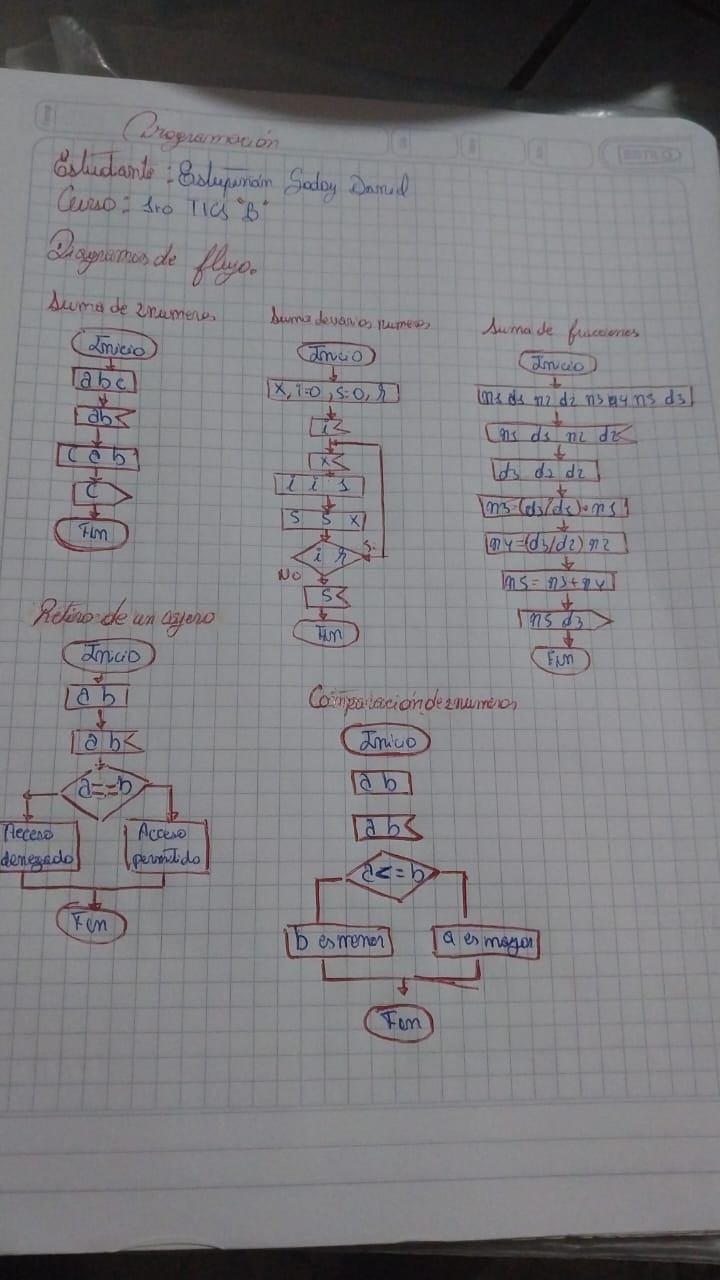 Programación
Estudiante: Estupiñán Godoy Daniel
Curso: 1ro TICS "B"
Diagramas de flujo.
Suma de 2 numeros
Inicio
a b c
a b
c a b
c
Fin
Suma de varios numeros
Inicio
x, i=0, s=0, r
i
x
i i 1
s s x
i r
S.
No
s
Fin
Suma de fracciones
Inicio
n1 d1 n2 d2 n3 n4 n5 d3
n1 d1 n2 d2
d3 d1 d2
n3=(d3/d1)*n1
n4=(d3/d2) n2
n5= n3+n4
n5 d3
Fin
Retiro de un cajero
Inicio
a b
a b
a==b
Acceso
denegado
Acceso
permitido
Fin
Comparación de 2 numeros
Inicio
a b
a b
a>=b
b es menor
a es mayor
Fin